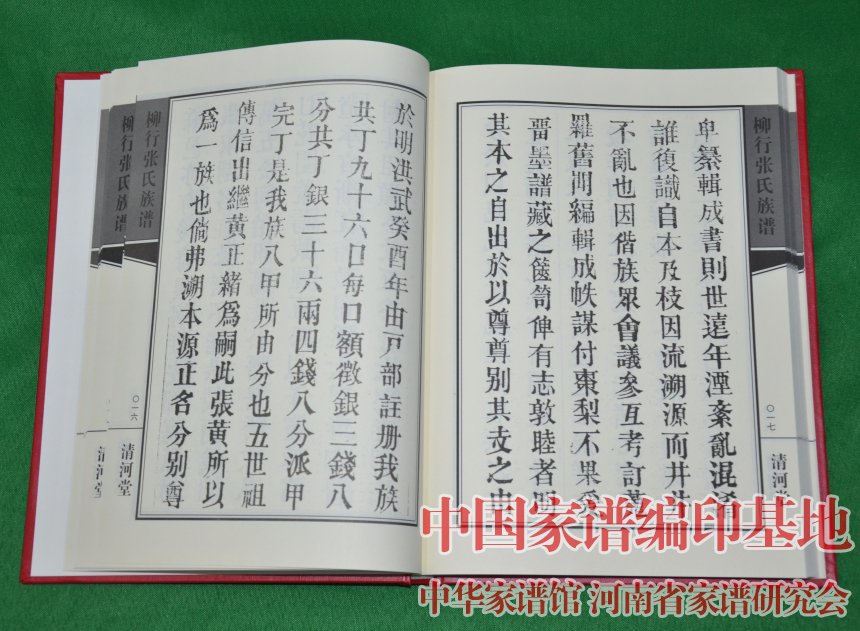 柳行张氏族谱
柳行张氏族谱
於明洪武癸酉年由戸部註册我族
共丁九十六口每口額徵銀三錢八
分共丁銀三十六兩四錢八分派甲
完丁是我族八甲所由分也五世祖
傳信出繼黄正緒爲嗣此張黄所以
爲一族也倘弗溯本源正名分別尊
〇一六
清河堂
清河堂
柳行张氏族谱
卑纂輯成書則世遠年湮紊亂混淆
誰復識自本及枝因流溯源而井井
不亂也因偕族眾會議參互考訂蒐
羅舊聞編輯成帙謀付棗梨不果爰
畱墨譜藏之篋笥俾有志敦睦者明
其本之自出於以尊尊别其支之由
〇一七
清河堂
中国家谱编印基地
中华家谱馆 河南省家谱研究会